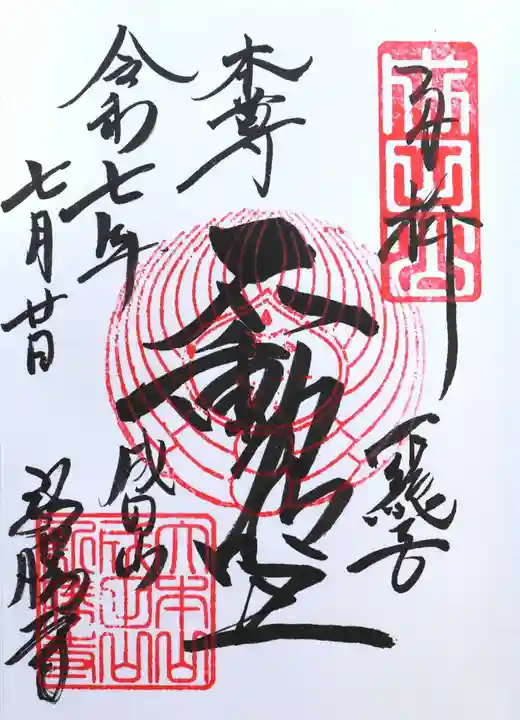 奉拝
成田山
本尊
不動明王
令和七年
七月廿日
成田山
新勝寺
大本山
成田山
新勝寺